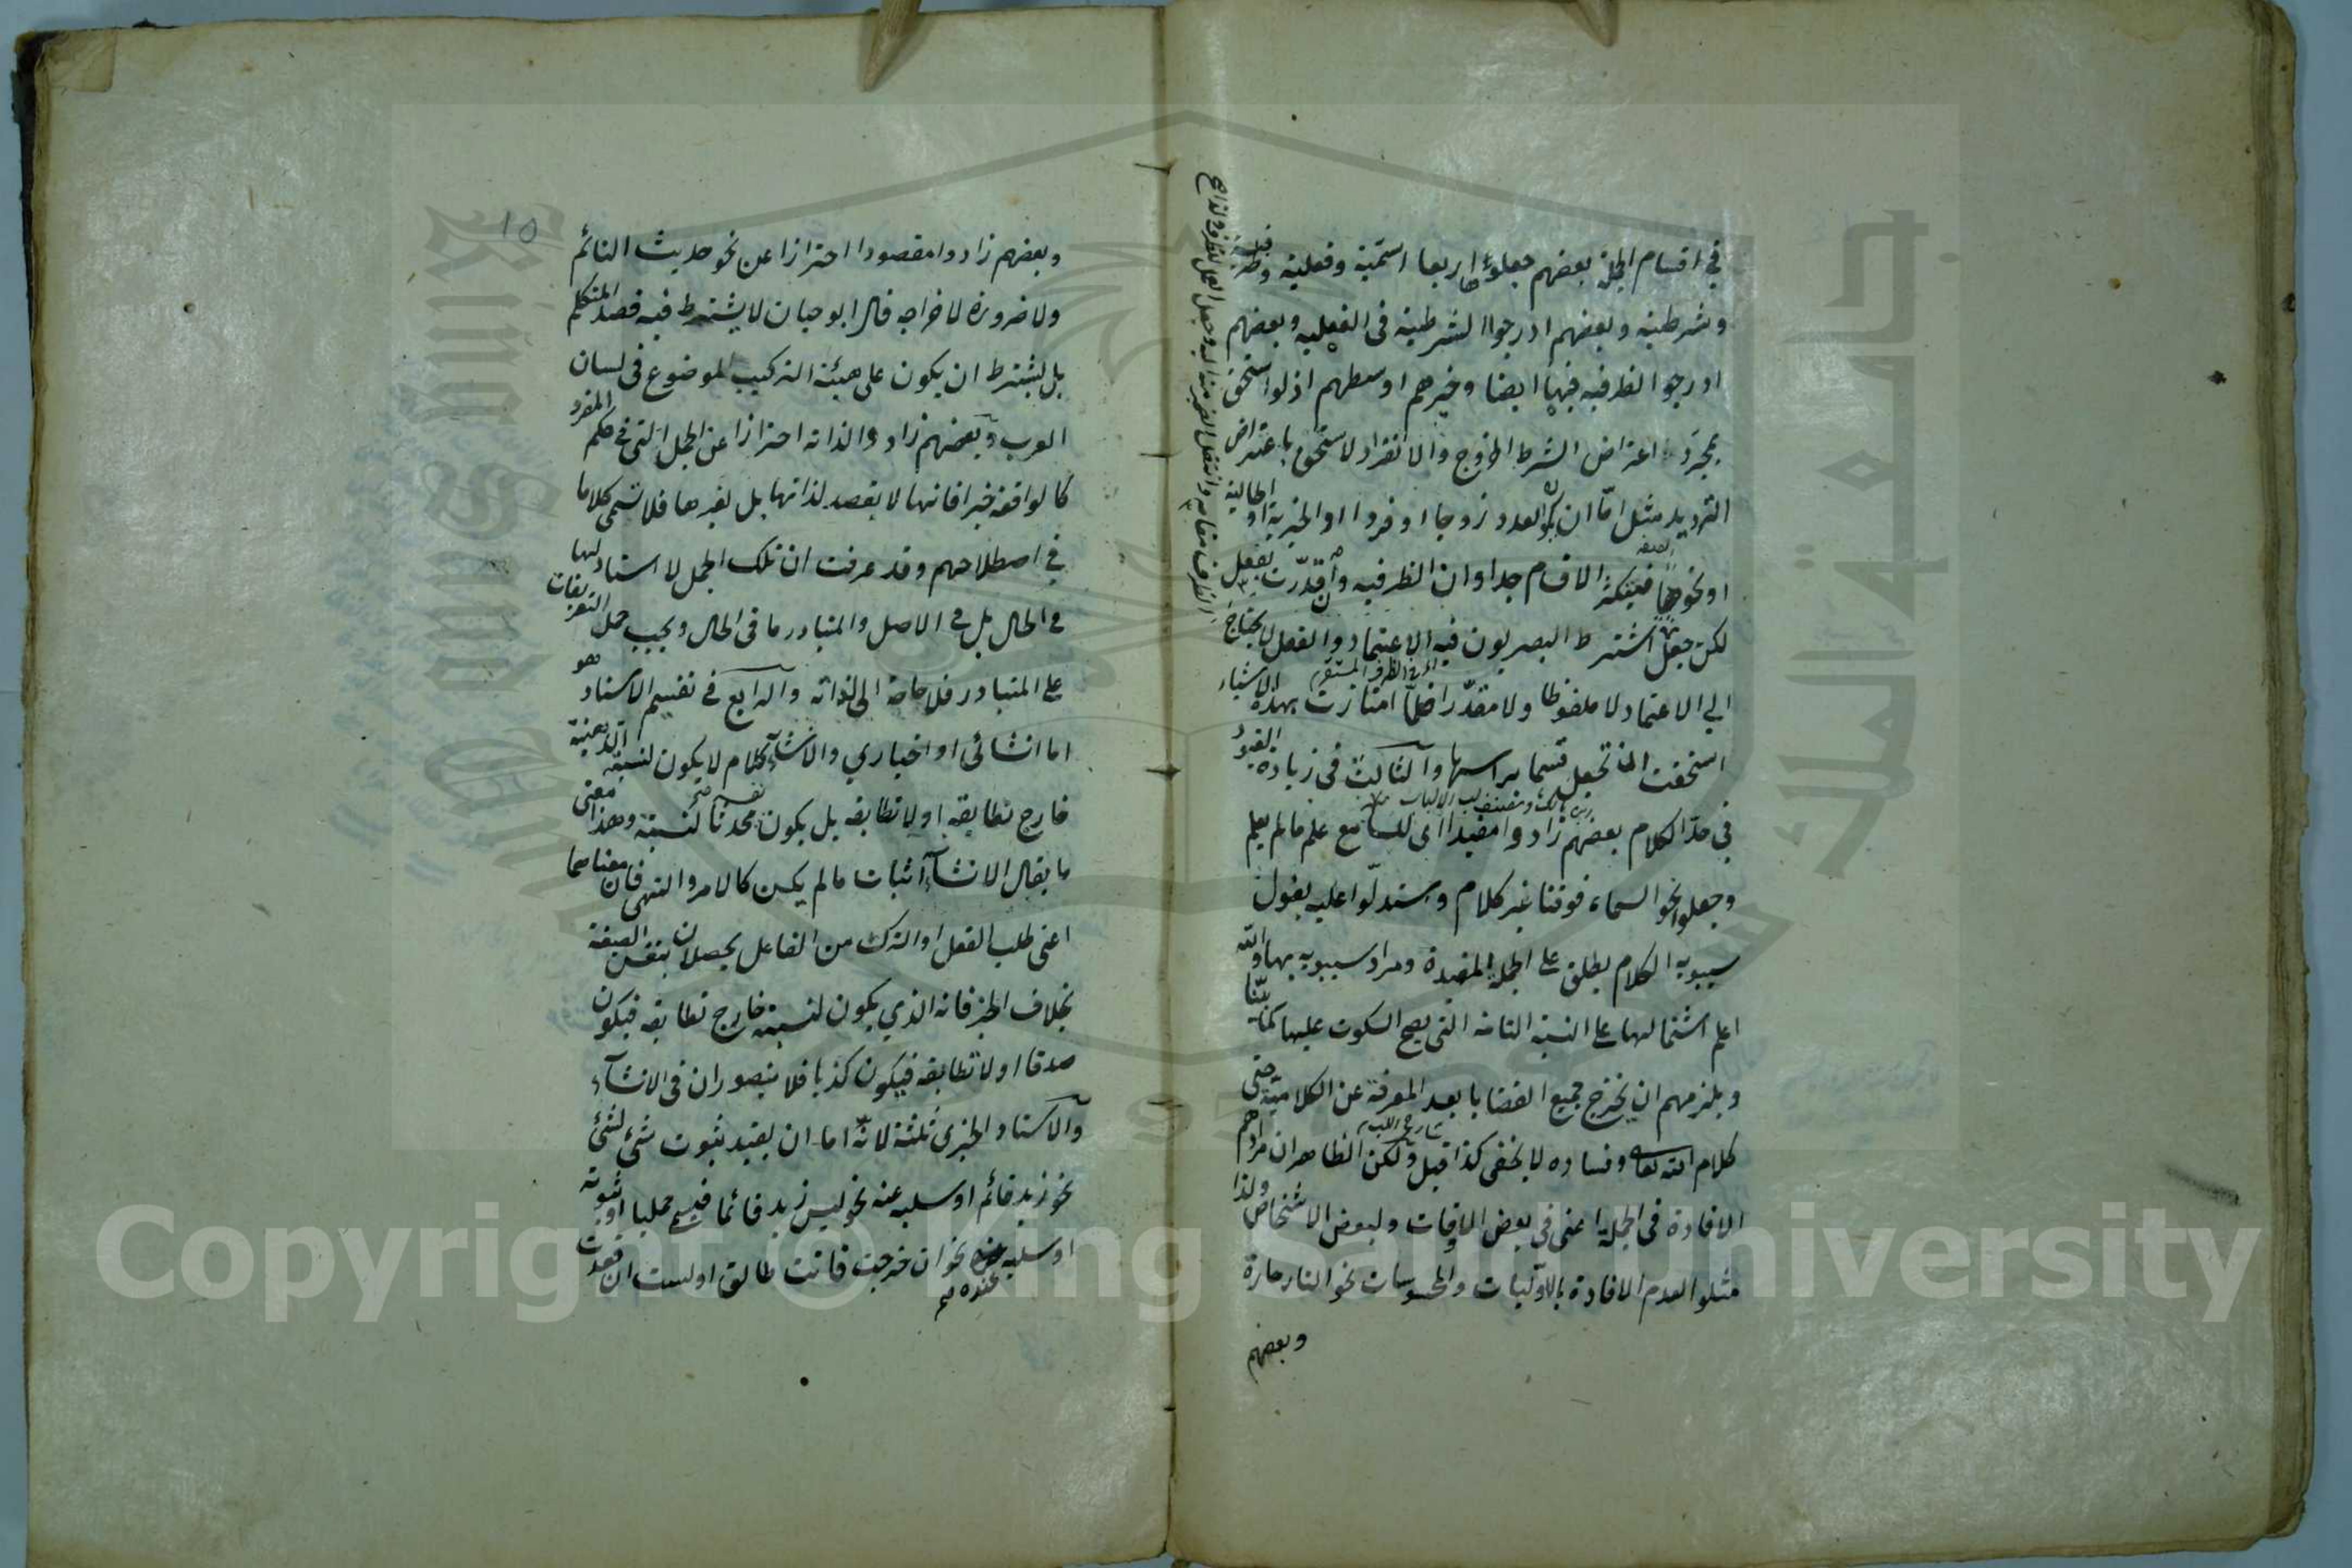 في اقسام الجمل بعضهم جعلوها اربعا اسمية وفعلية وظرفية
وشرطية وبعضهم ادرجوا الشرطية في الفعلية وبعضهم
ادرجوا الظرفية فيها ايضا وخيرهم اوسطهم اذ لو استحق
بمجرد اعتراض الشرط الخروج والانفراد لاستحق باعتراض
الترديد مثل اما ان يكون العدد زوجا او فردا او الخبرية او الحالية
او نحوها فيتكثر الاقسام جدا وان الظرفية وان قدرت بفعل
لكن اشترط البصريون فيه الاعتماد والفعل لا يحتاج
الى الاعتماد لا ملفوظا ولا مقدرا فلما امتازت بهذه الاشياء
استحقت ان تجعل قسما براسها والثالث في زيادة القيود
في حد الكلام بعضهم زادوا مفيدا اى للسامع علم ما لم يعلم
وجعلوا نحو السماء فوقنا غير كلام واستدلوا عليه بقول
سيبويه الكلام يطلق على الجمل المفيدة ومراد سيبويه بها والله
اعلم اشتمالها على النسبة التامة التي يصح السكوت عليها كما بينا
ويلزمهم ان يخرج جميع القضايا بعد المعرفة عن الكلامية حتى
كلام الله تعالى وفساده لا يخفى كذا قيل ولكن الظاهر ان مرادهم
الافادة في الجملة اعنى في بعض الاوقات ولبعض الاشخاص ولذا
مثلوا لعدم الافادة بالاوليات والمحسوسات نحو النار حارة
وبعضهم
١٥
وبعضهم زادوا مقصودا احترازا عن نحو حديث النائم
ولا ضرورة لاخراجه قال ابو حيان لا يشترط فيه قصد المتكلم
بل يشترط ان يكون على هيئة التركيب الموضوع في لسان
العرب وبعضهم زادوا لذاته احترازا عن الجمل التي في حكم المفرد
كالواقعة خبرا فانها لا يقصد لذاتها بل لغيرها فلا تسمى كلاما
في اصطلاحهم وقد عرفت ان تلك الجمل لا اسناد لها
في الحال بل في الاصل والمتبادر ما في الحال ويجب حمل التعريفات
على المتبادر فلا حاجة الى لذاته والرابع في تقسيم الاسناد وهو
اما انشائى او اخباري والانشاء كلام لا يكون لنسبته الذهنية
خارج تطابقه او لا تطابقه بل يكون محدثا لنسبة وهذا معنى
ما يقال الانشاء اثبات ما لم يكن كالامر والنهى فان معناهما
اعنى طلب الفعل او الترك من الفاعل يحصلان بنفس الصيغة
بخلاف الخبر فانه الذي يكون لنسبته خارج تطابقه فيكون
صدقا او لا تطابقه فيكون كذبا فلا يتصوران في الانشاء
والاسناد الخبرى ثلثة لانه اما ان يفيد ثبوت شئ لشئ
نحو زيد قائم او سلبه عنه نحو ليس زيد قائما فيسمى حمليا او ثبوته
او سلبه عنده نحو ان خرجت فانت طالق او لست ان قعدت